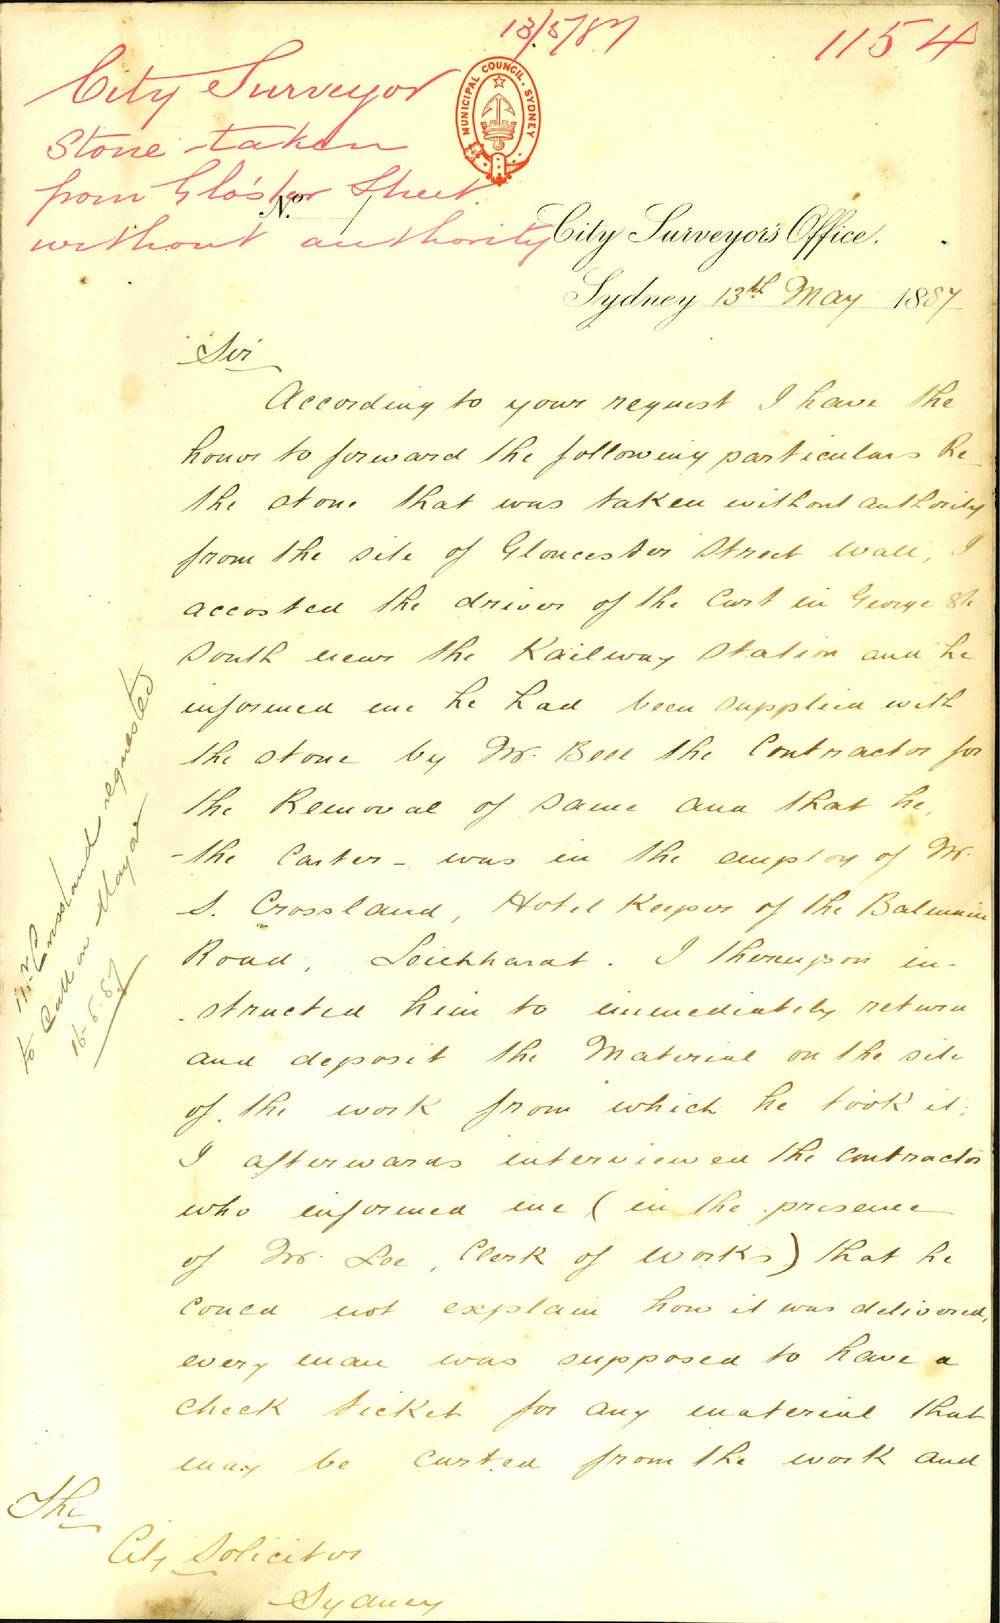 13/5/87
1154
City Surveyor
Stone taken
from Glo'ster Street
without authority
MUNICIPAL COUNCIL. SYDNEY
No.
City Surveyor's Office.
Sydney 13th May 1887
Sir
According to your request I have the
honor to forward the following particulars Re
the stone that was taken without authority
from the site of Gloucester Street Wall, I
accosted the driver of the Cart in George St
South near the Railway Station and he
informed me he had been supplied with
the stone by Mr. Bell the Contractor for
the Removal of same and that he,
-the Carter- was in the employ of Mr.
S. Crossland, Hotel Keeper of the Balmain
Road, Leichhardt. I thereupon in-
structed him to immediately return
and deposit the Material on the site
of the work from which he took it,
I afterwards interviewed the Contractor
who informed me (in the presence
of Mr. Lee, Clerk of Works) that he
could not explain how it was delivered,
every man was supposed to have a
check ticket for any material that
may be carted from the work and
The
City Solicitor
Sydney
Mr Crossland requested
to call on Mayor
16.5.87